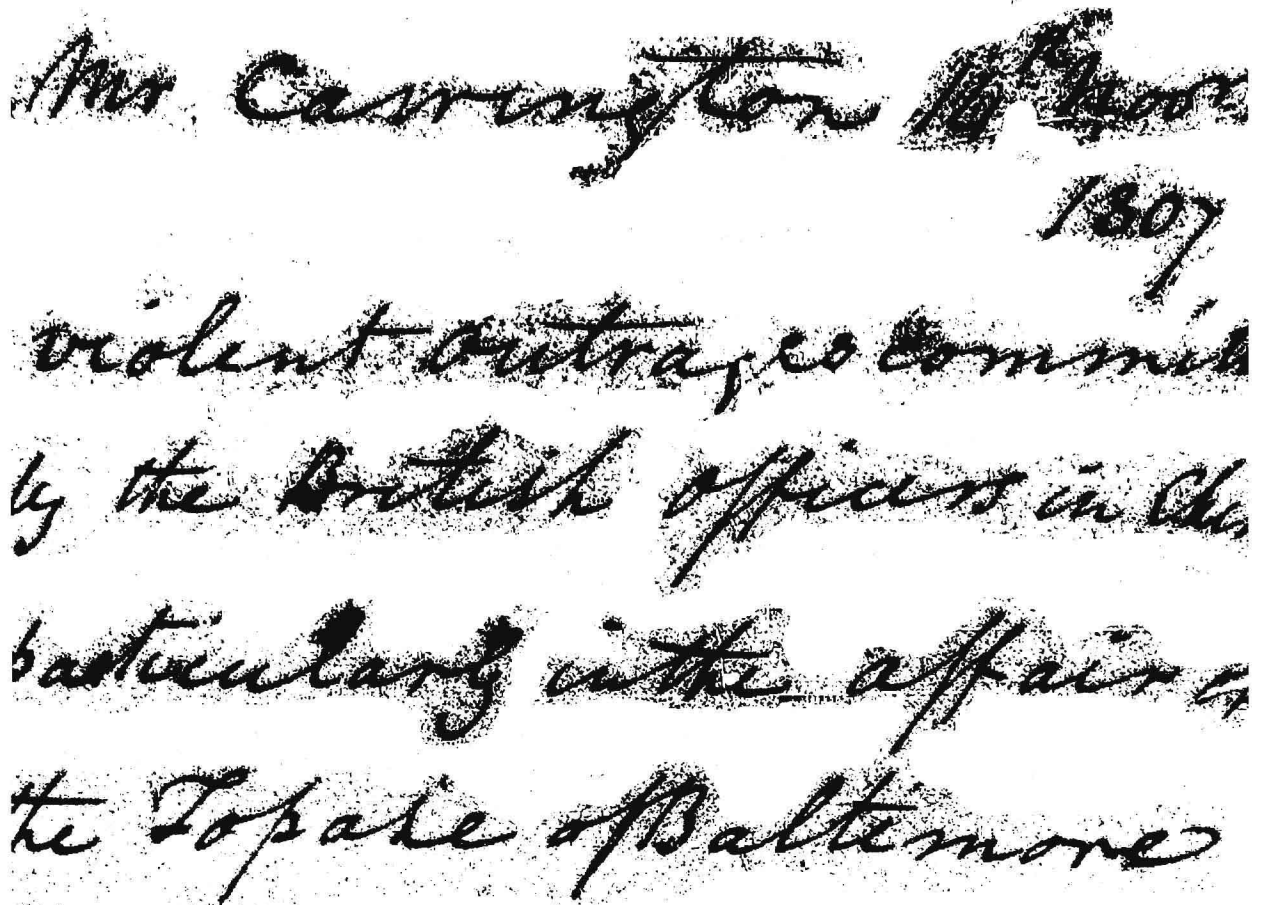 Mr Carrington 16th Novr
1807
violent outrages commit
by the British officers in Chi
particularly in the affair of
the Topaze of Baltimore